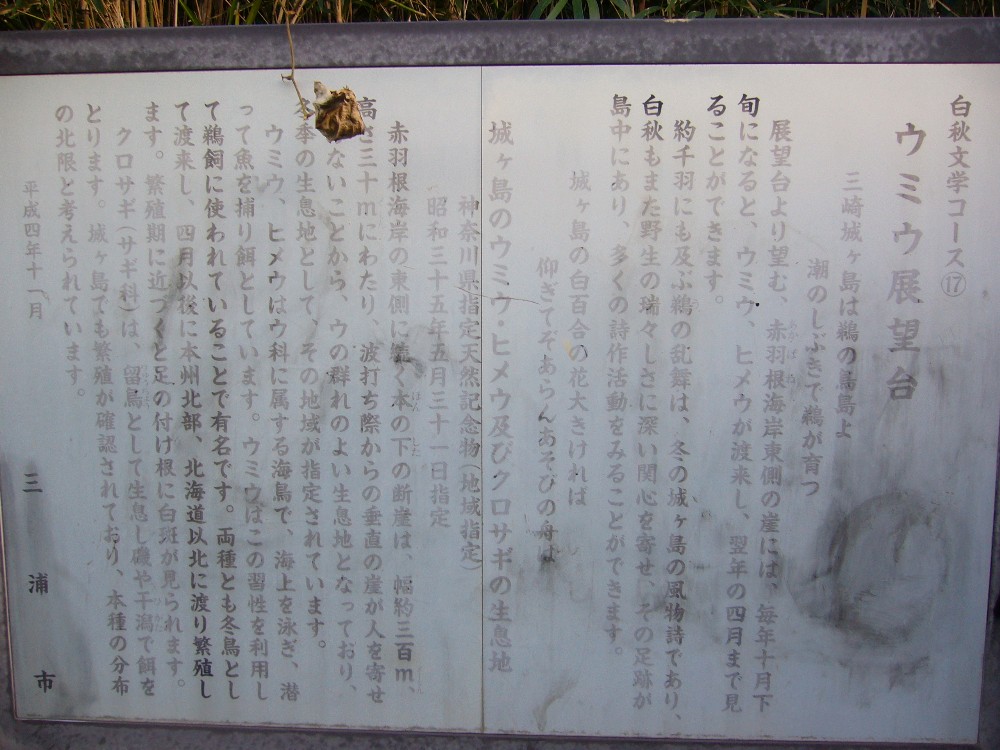 白秋文学コース⑰
ウミウ展望台
三崎城ヶ島は鵜の鳥島よ
潮のしぶきで鵜が育つ
展望台より望む、赤羽根海岸東側の崖には、毎年十月下
旬になると、ウミウ、ヒメウが渡来し、翌年の四月まで見
ることができます。
約千羽にも及ぶ鵜の乱舞は、冬の城ヶ島の風物詩であり、
白秋もまた野生の瑞々しさに深い関心を寄せ、その足跡が
島中にあり、多くの詩作活動をみることができます。
城ヶ島の白百合の花大きければ
仰ぎてぞあらんあそびの舟は
城ヶ島のウミウ・ヒメウ及びクロサギの生息地
神奈川県指定天然記念物（地域指定）
昭和三十五年五月三十一日指定
赤羽根海岸の東側に続く本の下の断崖は、幅約三百m、
高さ三十mにわたり、波打ち際からの垂直の崖が人を寄せ
ないことから、ウの群れのよい生息地となっており、
冬季の生息地として、その地域が指定されています。
ウミウ、ヒメウはウ科に属する海鳥で、海上を泳ぎ、潜
って魚を捕り餌としています。ウミウはこの習性を利用し
て鵜飼に使われていることで有名です。両種とも冬鳥とし
て渡来し、四月以後に本州北部、北海道以北に渡り繁殖し
ます。繁殖期に近づくと足の付け根に白斑が見られます。
クロサギ（サギ科）は、留鳥として生息し磯や干潟で餌を
とります。城ヶ島でも繁殖が確認されており、本種の分布
の北限と考えられています。
平成四年十一月
三浦市